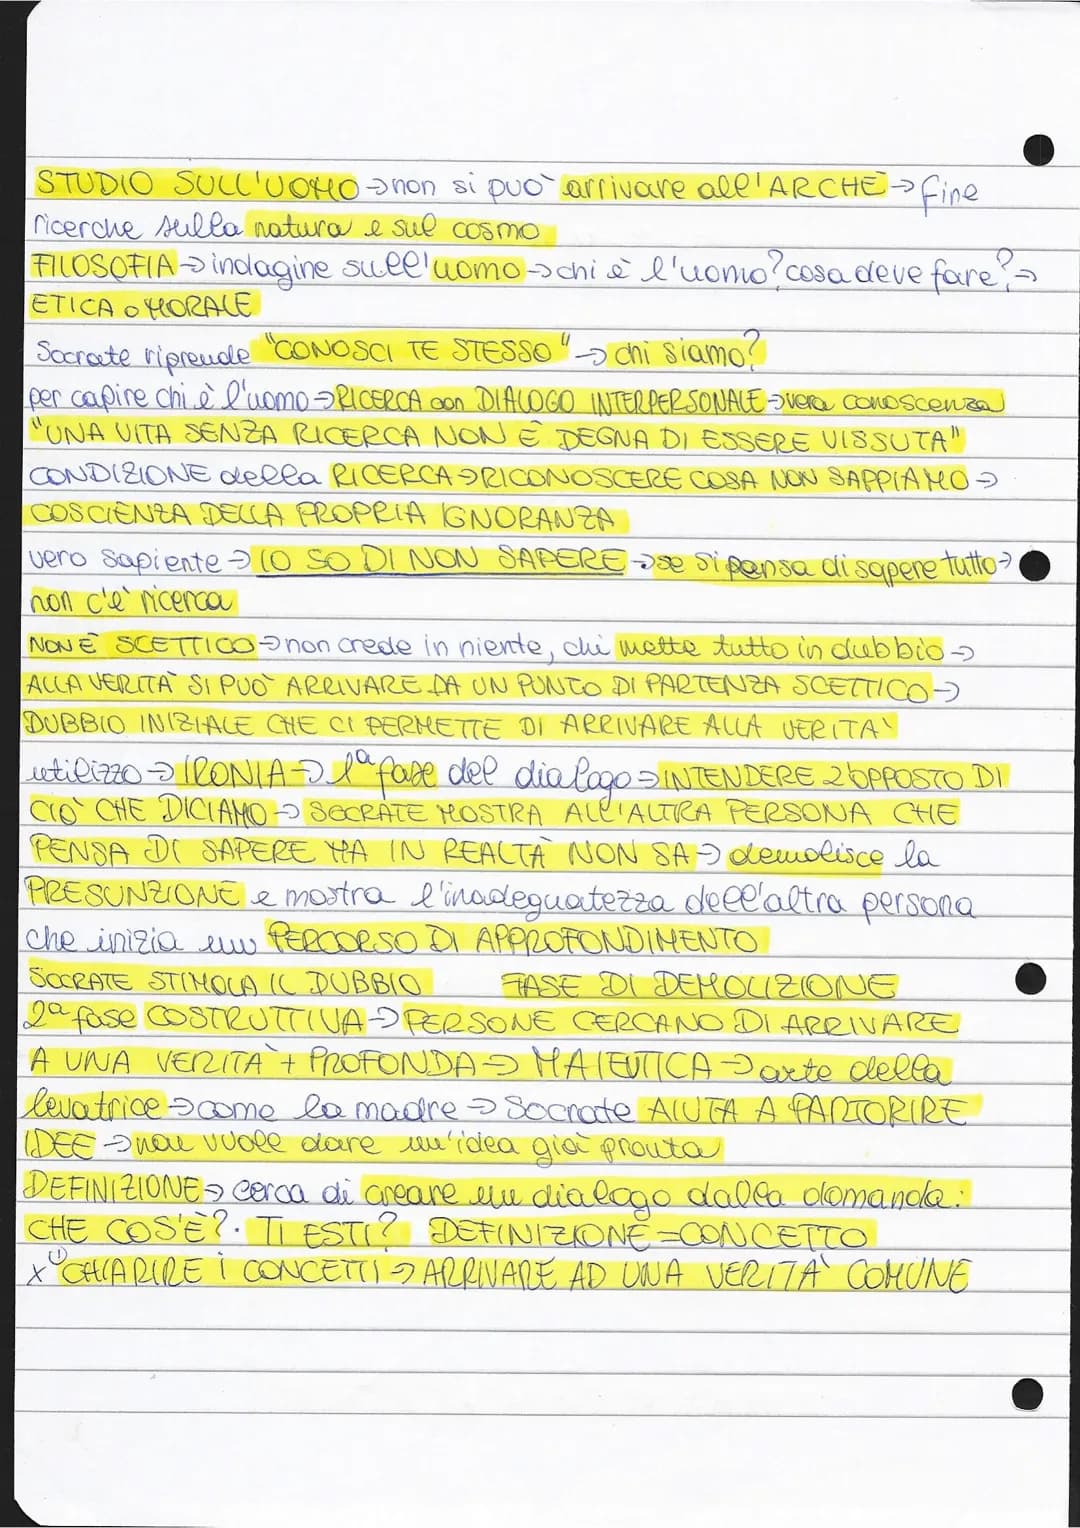 STUDIO SULL'UOMO → non si può arrivare all'ARCHÈ → fine
ricerche sulla natura e sul cosmo
FILOSOFIA → indagine sull'uomo → chi è l'uomo? cosa deve fare? →
ETICA o MORALE
Socrate riprende "CONOSCI TE STESSO" → chi siamo?
per capire chi è l'uomo → RICERCA con DIALOGO INTERPERSONALE → vera conoscenza
"UNA VITA SENZA RICERCA NON È DEGNA DI ESSERE VISSUTA"
CONDIZIONE della RICERCA → RICONOSCERE COSA NON SAPPIAMO →
COSCIENZA DELLA PROPRIA IGNORANZA
vero sapiente → IO SO DI NON SAPERE → se si pensa di sapere tutto →
non c'è ricerca
NON È SCETTICO → non crede in niente, chi mette tutto in dubbio →
ALLA VERITÀ SI PUÒ ARRIVARE DA UN PUNTO DI PARTENZA SCETTICO →
DUBBIO INIZIALE CHE CI PERMETTE DI ARRIVARE ALLA VERITÀ
utilizzo → IRONIA → 1ª fase del dialogo → INTENDERE L'OPPOSTO DI
CIÒ CHE DICIAMO → SOCRATE MOSTRA ALL'ALTRA PERSONA CHE
PENSA DI SAPERE MA IN REALTÀ NON SA → demolisce la
PRESUNZIONE e mostra l'inadeguatezza dell'altra persona
che inizia un PERCORSO DI APPROFONDIMENTO
SOCRATE STIMOLA IL DUBBIO FASE DI DEMOLIZIONE
2ª fase COSTRUTTIVA → PERSONE CERCANO DI ARRIVARE
A UNA VERITÀ + PROFONDA → MAIEUTICA → arte della
levatrice → come la madre → Socrate AIUTA A PARTORIRE
IDEE → non vuole dare un'idea già pronta
DEFINIZIONE → cerca di creare un dialogo dalla domanda:
CHE COS'È?. TI ESTI? DEFINIZIONE = CONCETTO
x (!) CHIARIRE I CONCETTI → ARRIVARE AD UNA VERITÀ COMUNE